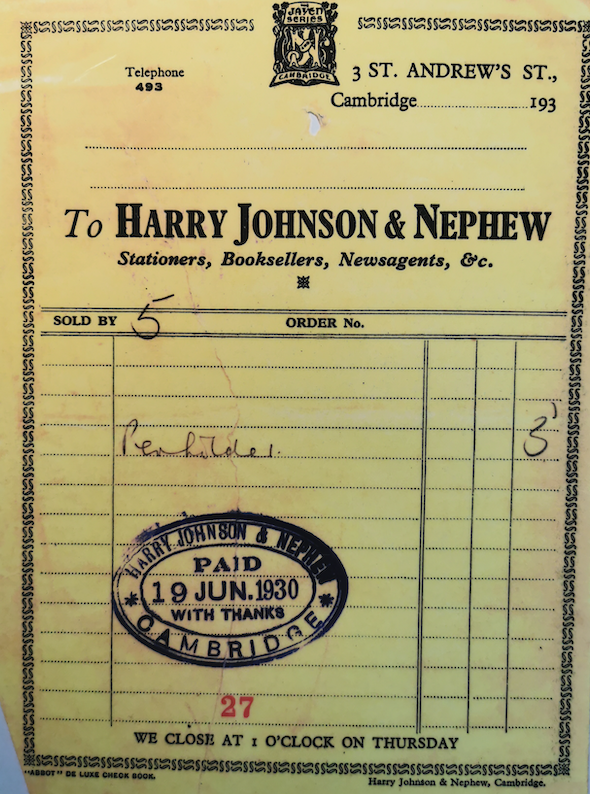 THE
JAYEN
SERIES
CAMBRIDGE
Telephone
493
3 ST. ANDREW'S ST.,
Cambridge 193
To HARRY JOHNSON & NEPHEW
Stationers, Booksellers, Newsagents, &c.
SOLD BY 5 ORDER No.
Penholder. 3
HARRY JOHNSON & NEPHEW
PAID
19 JUN. 1930
WITH THANKS
CAMBRIDGE
27
WE CLOSE AT 1 O'CLOCK ON THURSDAY
"ABBOT" DE LUXE CHECK BOOK.
Harry Johnson & Nephew, Cambridge.